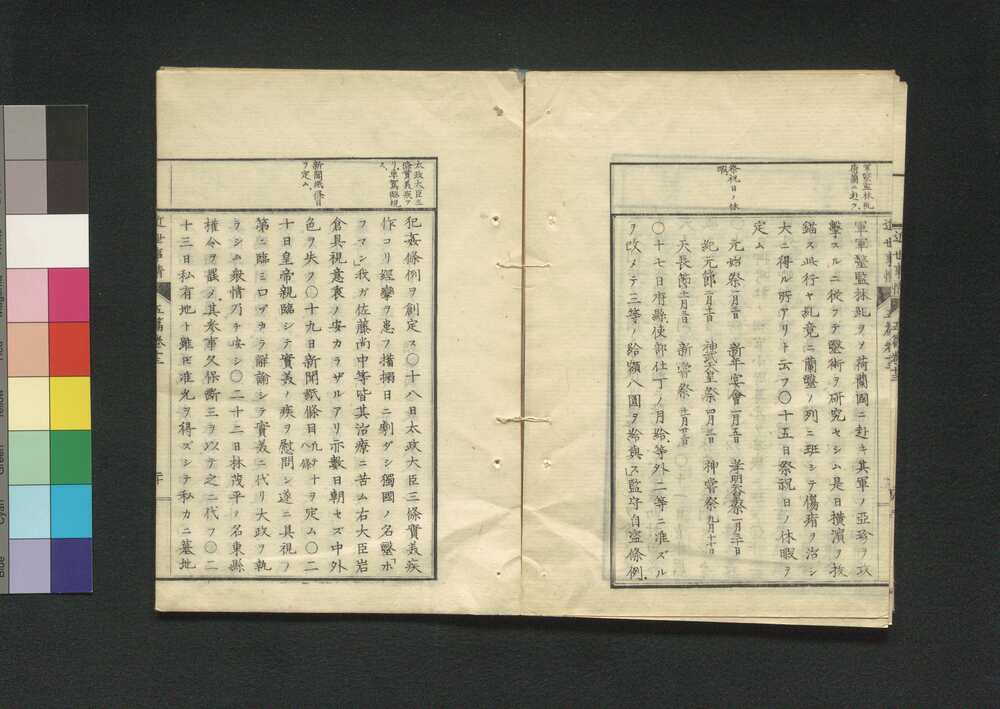 軍醫監林紀
荷蘭ニ赴ク
軍軍醫監林紀ヲ荷蘭國ニ赴キ其軍ノ亞珍ヲ攻
擊スルニ從フテ醫術ヲ研究セシム是日橫濱ヲ拔
錨ス此行ヤ紀竟ニ蘭醫ノ列ニ班シテ傷痍ヲ治シ
大ニ得ル所アリト云フ〇十五日祭祝日ノ休暇ヲ
定ム
祭祝日ノ休
暇
元始祭一月三日 新年宴會一月五日 孝明天皇祭一月三十日
紀元節二月十一日 神武天皇祭四月三日 神嘗祭九月十七日
天長節十一月三日 新嘗祭十一月廿三日
〇十七日府縣使部仕丁ノ月給等外二等ニ准ズル
ヲ改メテ三等ノ給額八圓ヲ給與ス監守自盜條例
太政大臣三
條實美疾ア
リ車駕臨視
ス
犯姦條例ヲ創定ス〇十八日太政大臣三條實美疾
作コリ經攣ヲ患フ搐搦日ニ劇ダシ獨國ノ名醫ホ
フマン我ガ佐藤尚中等皆其治療ニ苦ム右大臣岩
倉具視意衷ノ安カラザルアリ亦數日朝セズ中外
新聞紙條目
ヲ定ム
色ヲ失フ〇十九日新聞紙條目凡テ十八條ヲ定ム〇二
十日皇帝親臨シテ實美ノ疾ヲ慰問シ遂ニ具視ノ
第ニ臨ミ口ヅカラ辭諭シテ實美ニ代リ大政ヲ執
ラシム衆情乃チ安シ〇二十二日林茂平ノ名東縣
權令ヲ罷メ其參事久保斷三ヲ以テ之ニ代フ〇二
十三日私有地ト雖ドモ准允ヲ得ズシテ私カニ墓地
近世事情
五篇卷十三